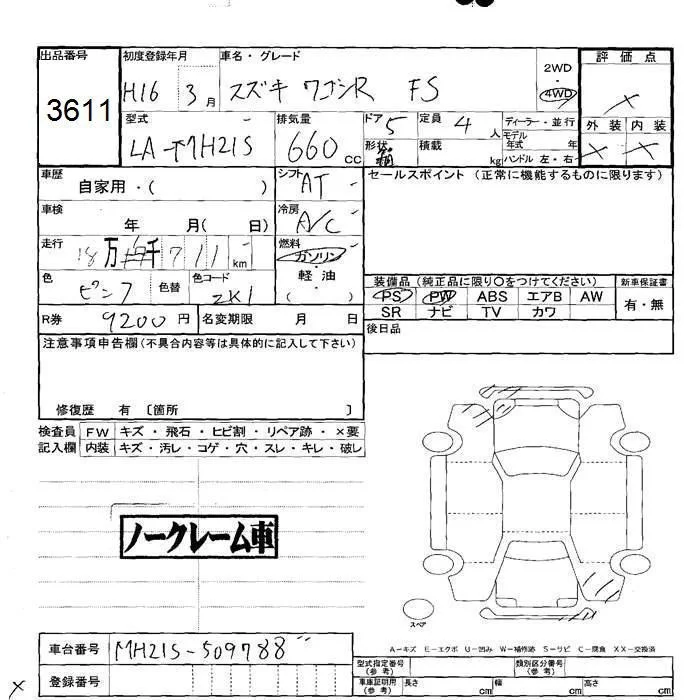 出品番号 初度登録年月 車名・グレード 2WD 評価点
3611 H16 3月 スズキ ワゴンR FS 4WD ×
型式 排気量 ドア 5 定員 4人 ディーラー・並行 外装 内装
LA-MH21S 660cc 形状 箱 積載 kg モデル年式 年 × ×
ハンドル 左・右
車歴 自家用・( ) シフト AT セールスポイント (正常に機能するものに限ります)
車検 年 月( 日) 冷房 A/C
走行 18万 千 711km 燃料 ガソリン・軽油 ( )
色 ピンク 色替 色コード ZK1
装備品 (純正品に限り〇をつけてください) 新車保証書
PS PW ABS エアB AW 有・無
SR ナビ TV カワ
R券 9200円 名変期限 月 日 後日品
注意事項申告欄(不具合内容等は具体的に記入して下さい)
修復歴 有 〔箇所 〕
検査員 FW キズ・飛石・ヒビ割・リペア跡・×要
記入欄 内装 キズ・汚レ・コゲ・穴・スレ・キレ・破レ
ノークレーム車
スペア
A-キズ E-エクボ U-凹み W-補修跡 S-サビ C-腐食 XX-交換済
車台番号 MH21S-509788
登録番号
型式指定番号(参考) 類別区分番号(参考)
車庫証明用(参考) 長さ cm 幅 cm 高さ cm
×